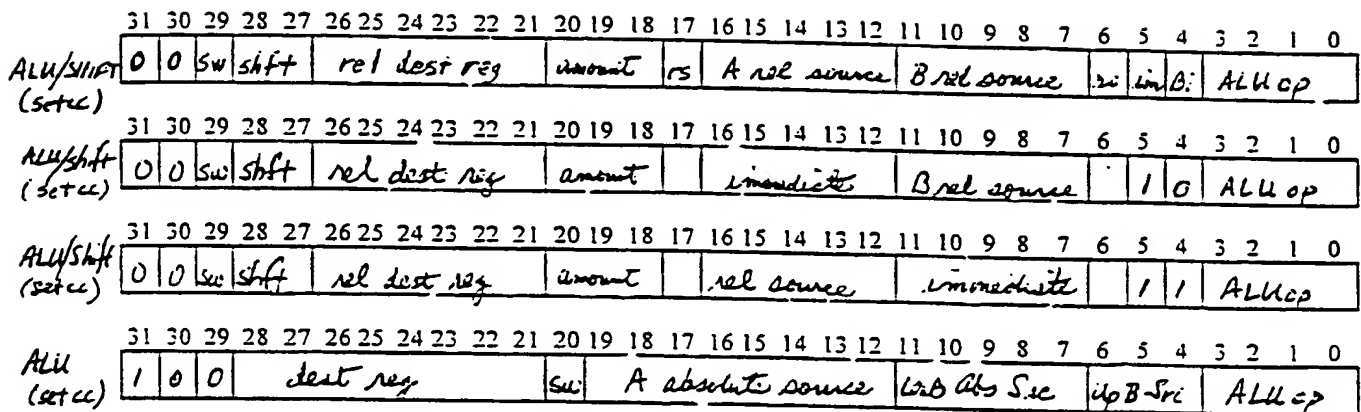 31 30 29 28 27 26 25 24 23 22 21 20 19 18 17 16 15 14 13 12 11 10 9 8 7 6 5 4 3 2 1 0
ALU/SHIFT 0 0 sw shft rel dest reg amount rs A rel source B rel source im Bi ALU op
(setcc)
31 30 29 28 27 26 25 24 23 22 21 20 19 18 17 16 15 14 13 12 11 10 9 8 7 6 5 4 3 2 1 0
ALU/shft 0 0 sw shft rel dest reg amount immediate B rel source 1 0 ALU op
(setcc)
31 30 29 28 27 26 25 24 23 22 21 20 19 18 17 16 15 14 13 12 11 10 9 8 7 6 5 4 3 2 1 0
ALU/Shift 0 0 sw shft rel dest reg amount rel source immediate 1 1 ALU op
(setcc)
31 30 29 28 27 26 25 24 23 22 21 20 19 18 17 16 15 14 13 12 11 10 9 8 7 6 5 4 3 2 1 0
ALU 1 0 0 dest reg sw A absolute source B Abs Src Up B Src ALU op
(setcc)